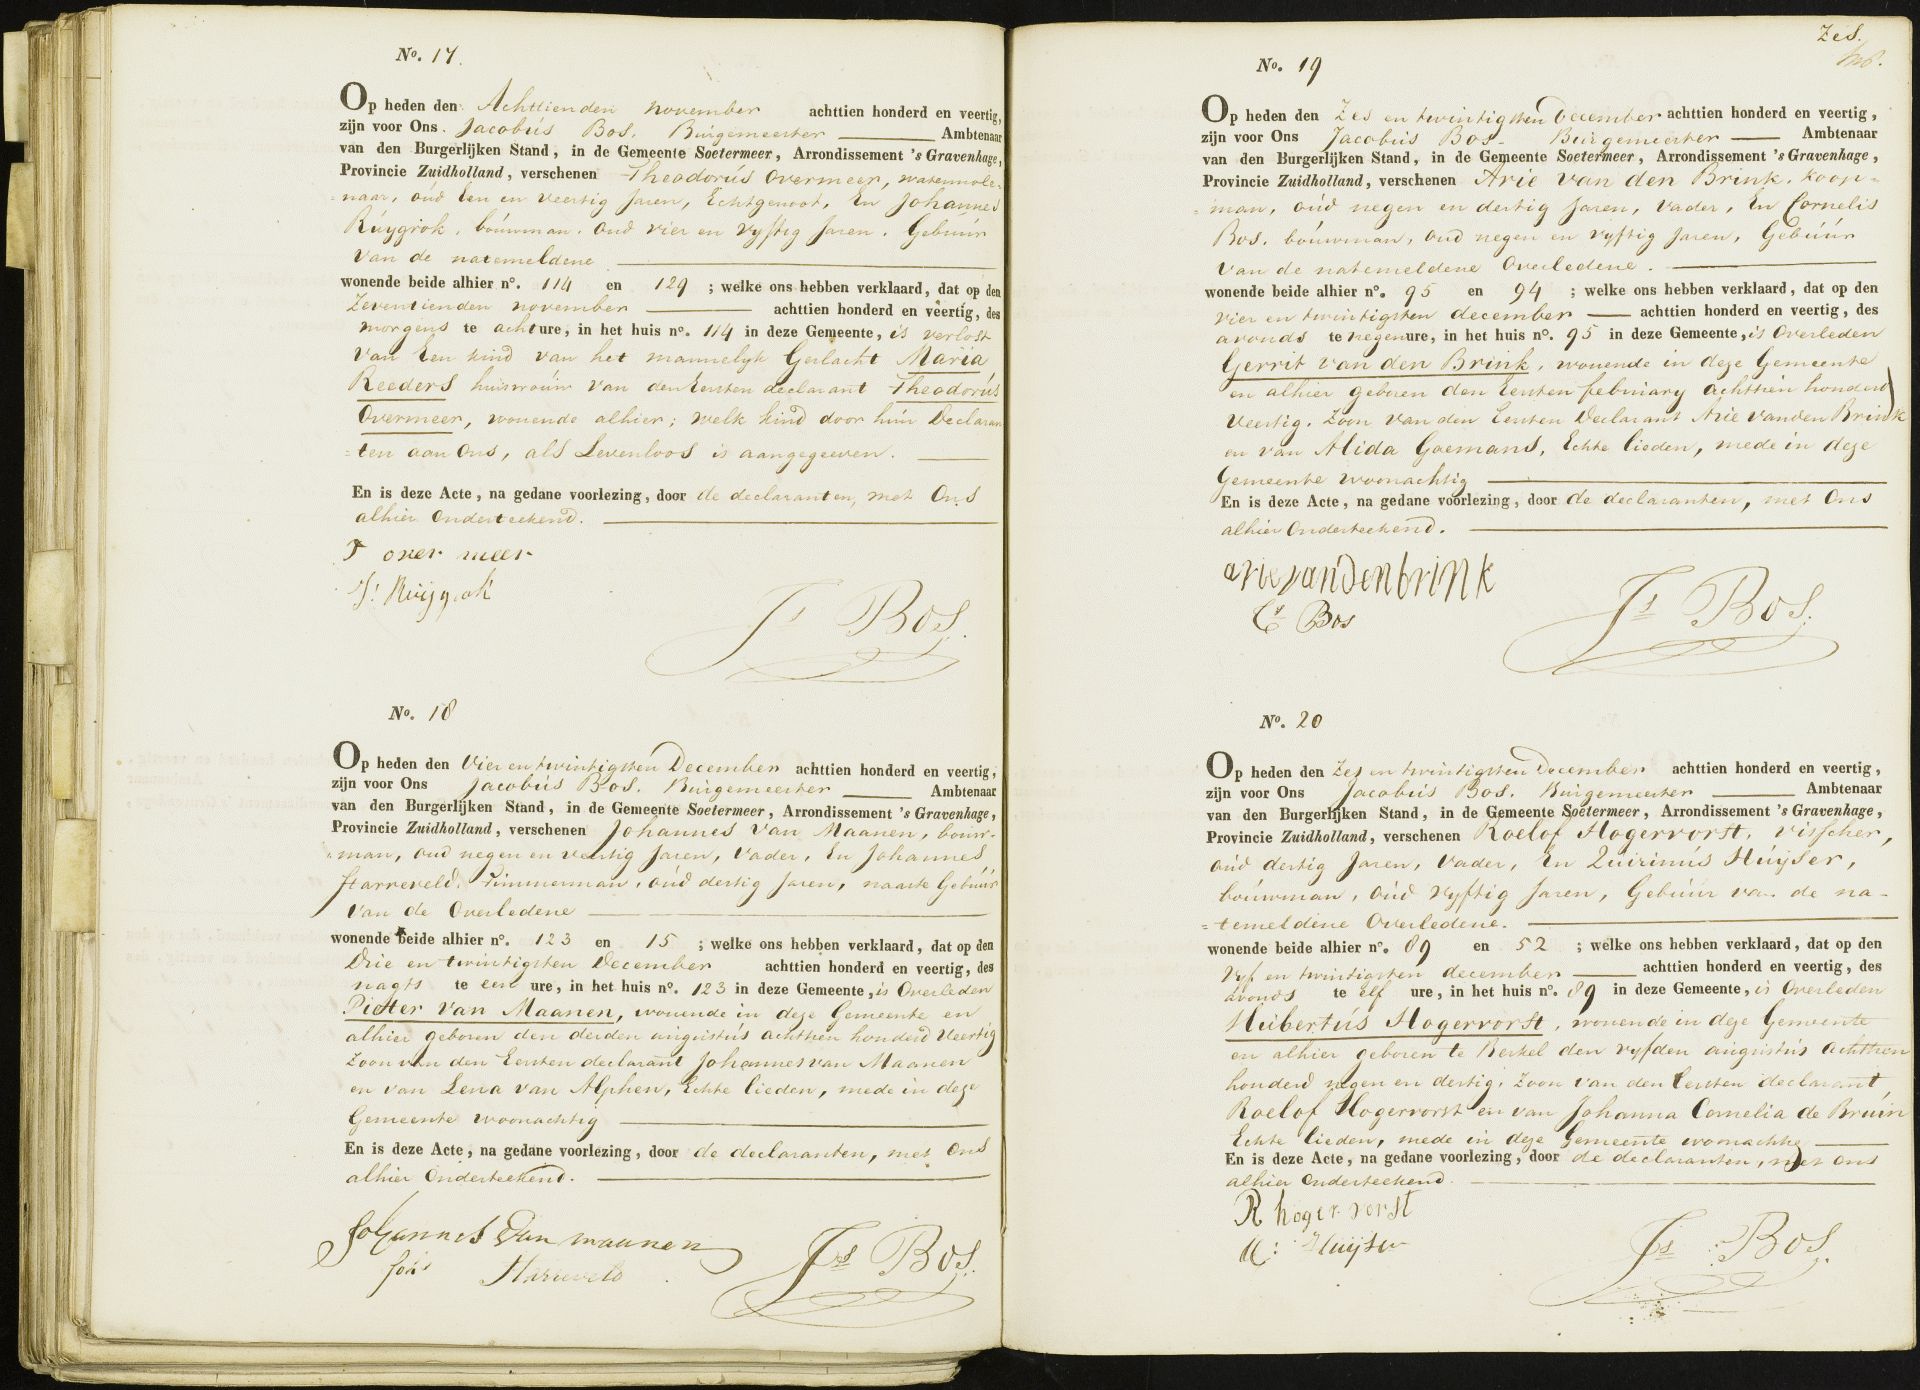 No. 17.
Op heden den Achttienden november achttien honderd en veertig,
zijn voor Ons. Jacobús Bos. Búrgemeester Ambtenaar
van den Burgerlijken Stand, in de Gemeente Soetermeer, Arrondissement 's Gravenhage,
Provincie Zuidholland, verschenen Theodorús Overmeer, watermole-
=naar, oúd Een en veertig Jaren, Echtgenoot, En Johannes
Rúygrok, boúwman. Oud vier en vyftig Jaren. Gebúúr
van de natemeldene
wonende beide alhier no. 114 en 129 ; welke ons hebben verklaard, dat op den
Zeventienden november achttien honderd en veertig, des
morgens te acht ure, in het huis no. 114 in deze Gemeente, is verlost
van Een kind van het mannelyk Geslacht Maria
Reeders huisvroúw van den Eersten declarant Theodorús
Overmeer, wonende alhier; welk kind door hún Declaran
=ten aan Ons, als Levenloos is aangegeeven.
En is deze Acte, na gedane voorlezing, door de declaranten, met Ons
alhier Onderteekend.
T over meer
J: Ruijgrok
Js Bos.
No. 18
Op heden den Vier en twintigsten December achttien honderd en veertig,
zijn voor Ons Jacobús Bos. Búrgemeester Ambtenaar
van den Burgerlijken Stand, in de Gemeente Soetermeer, Arrondissement 's Gravenhage,
Provincie Zuidholland, verschenen Johannes Van Maanen, bouw-
=man, oud negen en veertig Jaren, Vader, En Johannes
Starreveld. Timmerman, oúd dertig Jaren, naaste Gebúúr
van de Overledene
wonende beide alhier no. 123 en 15 ; welke ons hebben verklaard, dat op den
Drie en twintigsten December achttien honderd en veertig, des
nagts te een ure, in het huis no. 123 in deze Gemeente, is Overleden
Pieter Van Maanen, wonende in deze Gemeente en
alhier geboren den derden augústús achttien honderd Veertig
Zoon van den Eersten declarant Johannes van Maanen
en van Lena van Alphen, Echte lieden, mede in deze
Gemeente woonachtig
En is deze Acte, na gedane voorlezing, door de declaranten, met Ons
alhier Onderteekend.
Johannes Van maanen
Johs Starreveld
Js Bos.
Zes.
No. 19
Op heden den Zes en twintigsten December achttien honderd en veertig,
zijn voor Ons Jacobús Bos. Búrgemeester Ambtenaar
van den Burgerlijken Stand, in de Gemeente Soetermeer, Arrondissement 's Gravenhage,
Provincie Zuidholland, verschenen Arie van den Brink. Koop-
=man, oúd negen en dertig Jaren, Vader, En Cornelis
Bos. boúwman, oud negen en vyftig Jaren, Gebúúr
van de natemeldene Overledene.
wonende beide alhier no. 95 en 94 ; welke ons hebben verklaard, dat op den
vier en twintigsten december achttien honderd en veertig, des
avonds te negen ure, in het huis no. 95 in deze Gemeente, is Overleden
Gerrit van den Brink, wonende in deze Gemeente
en alhier geboren den Eersten febrúary Achttien honderd
Veertig. Zoon van den Eersten Declarant Arie van den Brink
en van Alida Goemans, Echte lieden, mede in deze
Gemeente woonachtig
En is deze Acte, na gedane voorlezing, door de declaranten, met Ons
alhier Onderteekend.
arie van den brink
Cs Bos
Js Bos.
No. 20
Op heden den Zes en twintigsten December achttien honderd en veertig,
zijn voor Ons Jacobús Bos. Búrgemeester Ambtenaar
van den Burgerlijken Stand, in de Gemeente Soetermeer, Arrondissement 's Gravenhage,
Provincie Zuidholland, verschenen Roelof Hogervorst, visscher,
oúd dertig Jaren, Vader, En Quirinús Húyser,
boúwman, Oúd vyftig Jaren, Gebúúr van de na-
=temeldene Overledene.
wonende beide alhier no. 89 en 52 ; welke ons hebben verklaard, dat op den
Vyf en twintigsten december achttien honderd en veertig, des
avonds te elf ure, in het huis no. 89 in deze Gemeente, is Overleden
Húbertús Hogervorst, wonende in deze Gemeente
en alhier geboren te Berkel den vyfden augústús Achttien
honderd negen en dertig. Zoon van den Eersten declarant
Roelof Hogervorst en van Johanna Cornelia de Brúin
Echte lieden, mede in deze Gemeente woonachtig
En is deze Acte, na gedane voorlezing, door de declaranten, met Ons
alhier Onderteekend.
R hoger vorst
Q: Huijser
Js Bos.